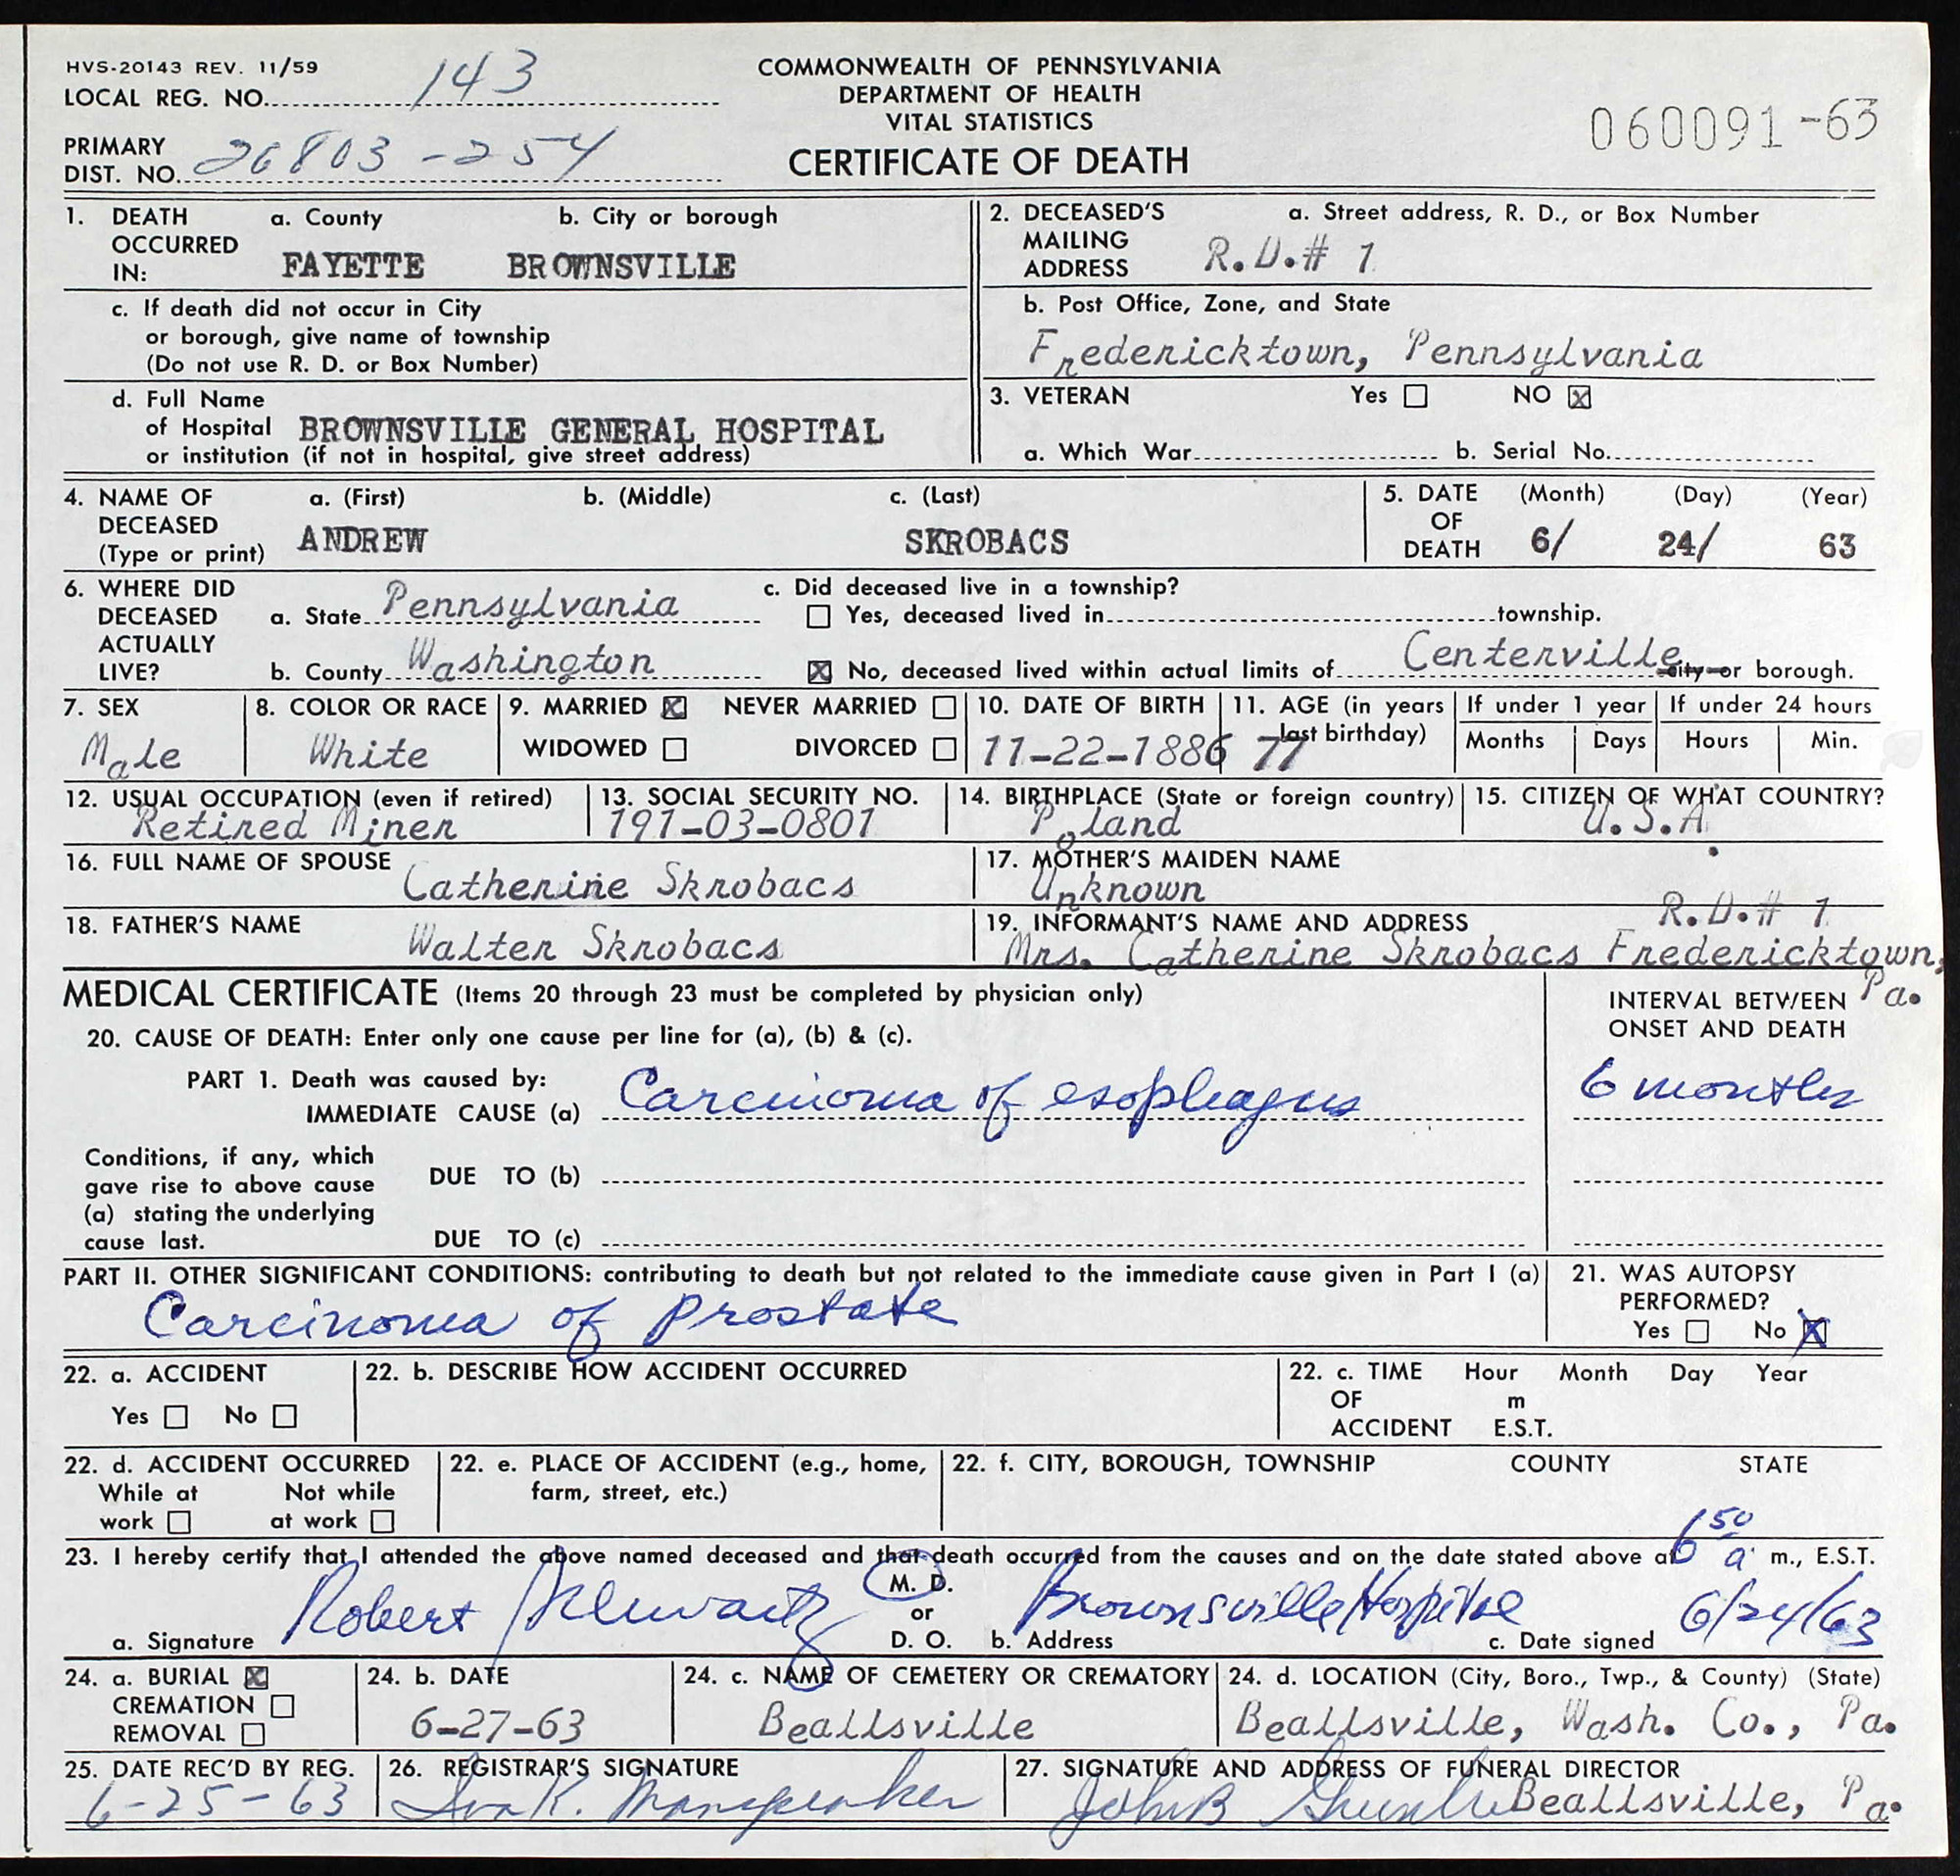 HVS-20143 REV. 11/59
LOCAL REG. NO. 143
PRIMARY
DIST. NO. 26803-254
COMMONWEALTH OF PENNSYLVANIA
DEPARTMENT OF HEALTH
VITAL STATISTICS
CERTIFICATE OF DEATH
060091-63
1. DEATH OCCURRED IN: a. County b. City or borough
FAYETTE BROWNSVILLE
c. If death did not occur in City
or borough, give name of township
(Do not use R. D. or Box Number)
d. Full Name
of Hospital BROWNSVILLE GENERAL HOSPITAL
or institution (if not in hospital, give street address)
2. DECEASED'S MAILING ADDRESS a. Street address, R. D., or Box Number
R.D.# 1
b. Post Office, Zone, and State
Fredericktown, Pennsylvania
3. VETERAN Yes ☐ NO ☒
a. Which War b. Serial No.
4. NAME OF DECEASED (Type or print) a. (First) b. (Middle) c. (Last)
ANDREW SKROBACS
5. DATE OF DEATH (Month) (Day) (Year)
6/ 24/ 63
6. WHERE DID DECEASED ACTUALLY LIVE?
a. State Pennsylvania
b. County Washington
c. Did deceased live in a township?
☐ Yes, deceased lived in township.
☒ No, deceased lived within actual limits of Centerville city or borough.
7. SEX
Male
8. COLOR OR RACE
White
9. MARRIED ☒ NEVER MARRIED ☐
WIDOWED ☐ DIVORCED ☐
10. DATE OF BIRTH
11-22-1886
11. AGE (in years last birthday)
77
If under 1 year
Months Days
If under 24 hours
Hours Min.
12. USUAL OCCUPATION (even if retired)
Retired Miner
13. SOCIAL SECURITY NO.
191-03-0801
14. BIRTHPLACE (State or foreign country)
Poland
15. CITIZEN OF WHAT COUNTRY?
U.S.A.
16. FULL NAME OF SPOUSE
Catherine Skrobacs
17. MOTHER'S MAIDEN NAME
Unknown
18. FATHER'S NAME
Walter Skrobacs
19. INFORMANT'S NAME AND ADDRESS R.D.# 1
Mrs. Catherine Skrobacs Fredericktown,
Pa.
MEDICAL CERTIFICATE (Items 20 through 23 must be completed by physician only)
INTERVAL BETWEEN
ONSET AND DEATH
20. CAUSE OF DEATH: Enter only one cause per line for (a), (b) & (c).
PART 1. Death was caused by:
IMMEDIATE CAUSE (a) Carcinoma of esophagus 6 months
Conditions, if any, which
gave rise to above cause
(a) stating the underlying
cause last.
DUE TO (b)
DUE TO (c)
PART II. OTHER SIGNIFICANT CONDITIONS: contributing to death but not related to the immediate cause given in Part I (a)
Carcinoma of prostate
21. WAS AUTOPSY
PERFORMED?
Yes ☐ No ☒
22. a. ACCIDENT
Yes ☐ No ☐
22. b. DESCRIBE HOW ACCIDENT OCCURRED
22. c. TIME OF ACCIDENT Hour Month Day Year
m
E.S.T.
22. d. ACCIDENT OCCURRED
While at work ☐ Not while at work ☐
22. e. PLACE OF ACCIDENT (e.g., home,
farm, street, etc.)
22. f. CITY, BOROUGH, TOWNSHIP COUNTY STATE
23. I hereby certify that I attended the above named deceased and that death occurred from the causes and on the date stated above at 6 50 a m., E.S.T.
a. Signature Robert Schwartz M. D. or D. O. b. Address Brownsville Hospital c. Date signed 6/24/63
24. a. BURIAL ☒
CREMATION ☐
REMOVAL ☐
24. b. DATE
6-27-63
24. c. NAME OF CEMETERY OR CREMATORY
Beallsville
24. d. LOCATION (City, Boro., Twp., & County) (State)
Beallsville, Wash. Co., Pa.
25. DATE REC'D BY REG.
6-25-63
26. REGISTRAR'S SIGNATURE
27. SIGNATURE AND ADDRESS OF FUNERAL DIRECTOR
John B Beallsville, Pa.